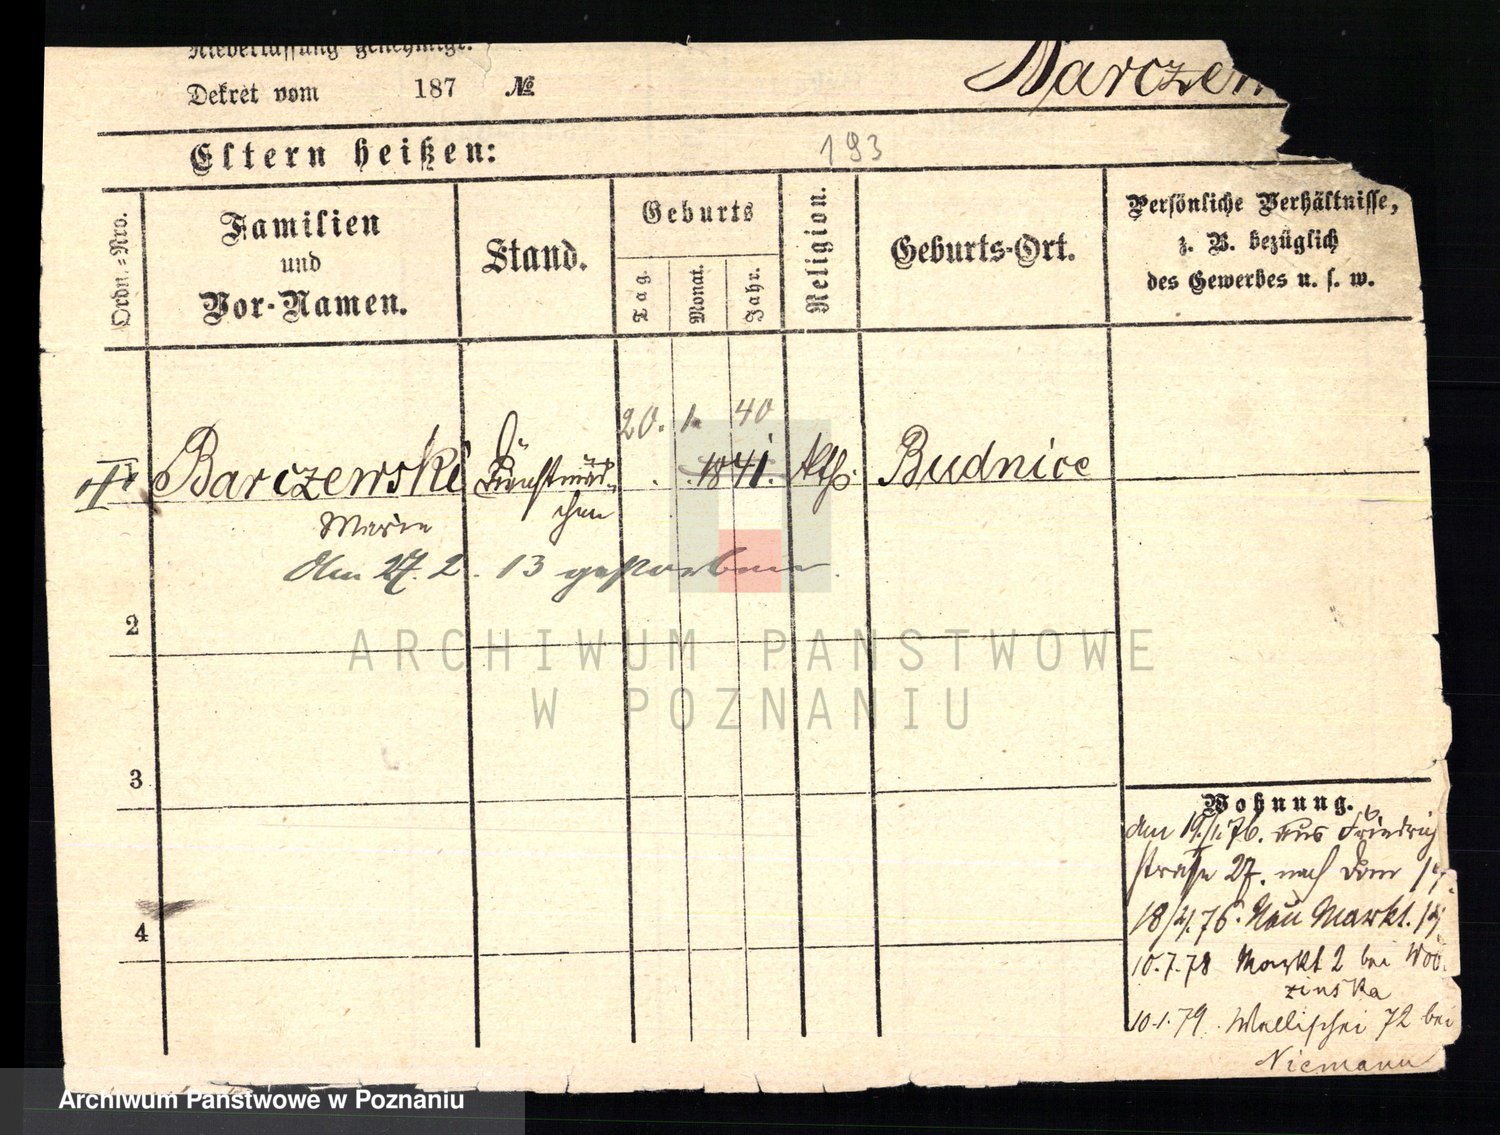 Niederlassung genehmigt.
Dekret vom 187 №
Barczew
Eltern heißen:
193
Ordn.-Nro.
Familien
und
Vor-Namen.
Stand.
Geburts
Tag.
Monat.
Jahr.
Religion.
Geburts-Ort.
Persönliche Verhältnisse,
z. B. bezüglich
des Gewerbes u. s. w.
20. 1. 40
Barczewski Dienstmäd- 1841. kth. Budnice
Marie chen
Am 27. 2. 13 gestorben.
2
3
4
Wohnung.
den 19/1. 76. aus Friedrich
straße 27. nach Dom 17.
18/2/. 76. Neu Markt.
10.7.78 Markt 2 bei
zinska
10.1.79. Wallischei 72 bei
Niemann
ARCHIWUM PAŃSTWOWE
W POZNANIU
Archiwum Państwowe w Poznaniu